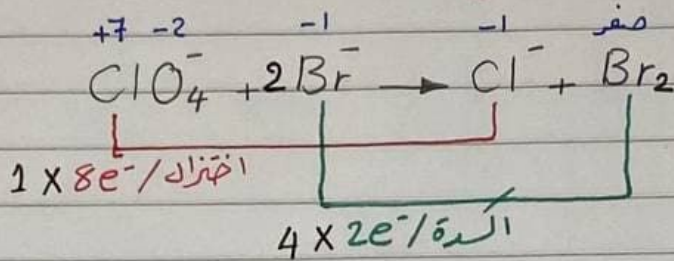 +7 -2 -1 -1 صفر
ClO₄⁻ + 2Br⁻ → Cl⁻ + Br₂
1 x 8e⁻/اختزال
4 x 2e⁻/اكسدة